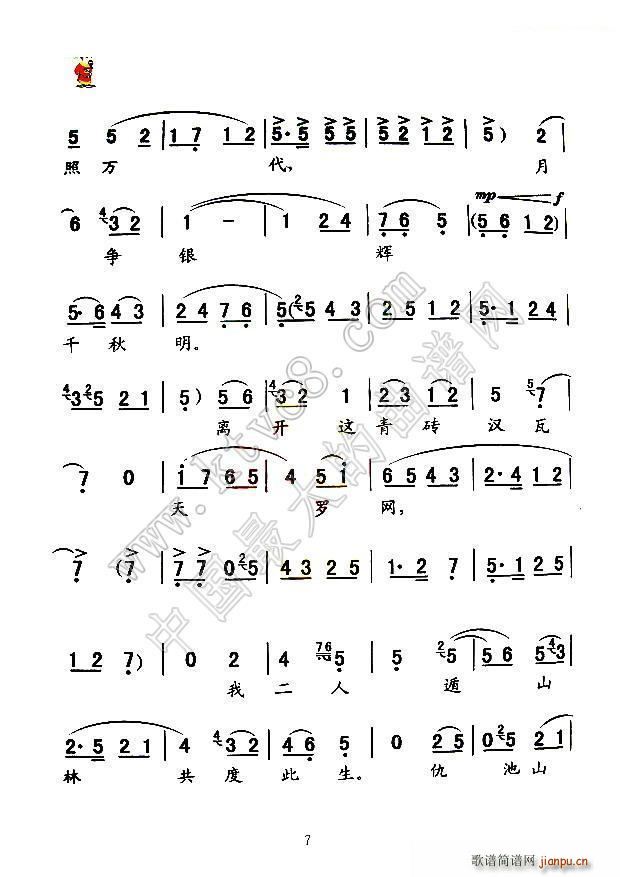 5 5 2 | 1 7 1 2 | 5· 5 5 5 | 5 2 1 2 | 5 ) 2 |
照 万 代, 月
mp f
6 4 3 2 | 1 - | 1 2 4 | 7 6 5 | ( 5 6 1 2 |
争 银 辉
5· 6 4 3 | 2 4 7 6 | 5 ( 2 5 4 3 | 2 7 6 1 | 5· 1 2 4 |
千 秋 明。
4 3 2 5 2 1 | 5 ) 5 6 | 4 3 2 1 | 2 3 1 2 | 5 5 7 |
离 开 这 青 砖 汉 瓦
7 0 | 1 7 6 5 | 4 5 1 | 6 5 4 3 | 2· 4 1 2 |
天 罗 网,
7 ( 7 | 7 7 0 2 5 | 4 3 2 5 | 1· 2 7 | 5· 1 2 5 |
1 2 7 ) | 0 2 | 4 7 6 5 | 5 2 5 | 5 6 5 4 3 |
我 二 人 遁 山
2· 5 2 1 | 4 4 3 2 | 2· 4 5 | 0 2 5 | 0 2 5 2 1 |
林 共 度 此 生。 仇 池 山
www.ktv8.com
中国最大的曲谱网
7
歌谱简谱网
jianpu.cn